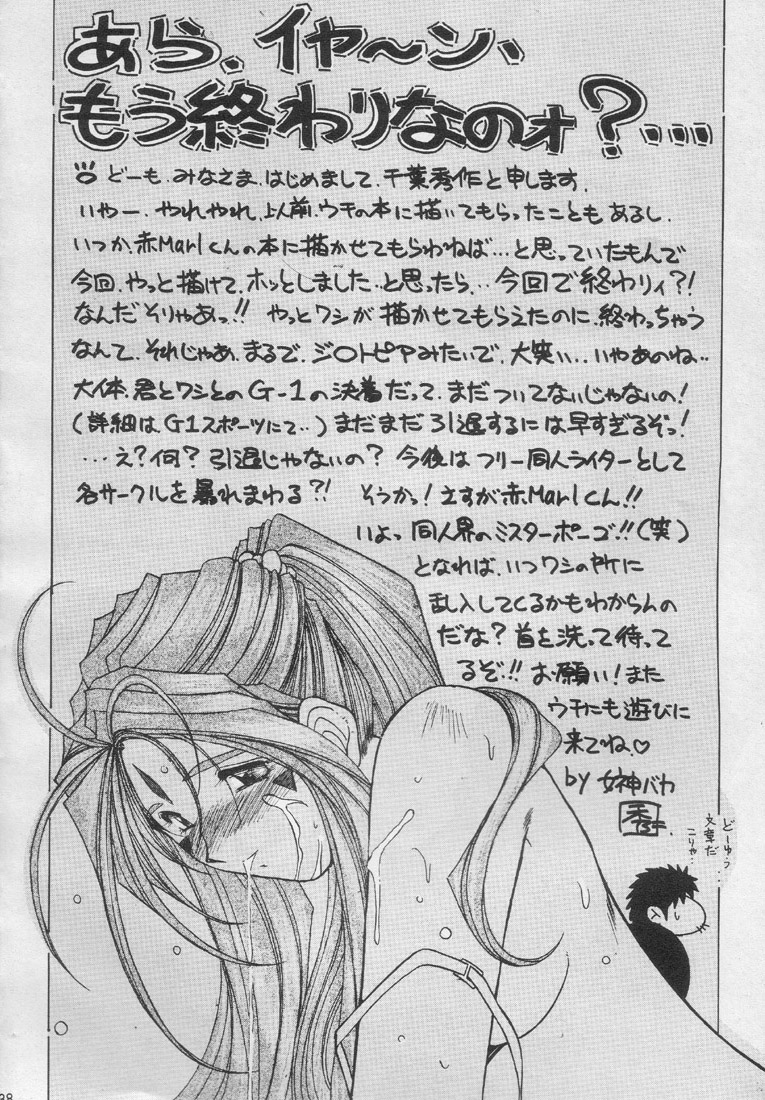 あら、イヤ〜ン、
もう終わりなのォ?・・・
どーも、みなさま、はじめまして、千葉秀作と申します。
いやー、やれやれ、以前、ウチの本に描いてもらったこともあるし、
いつか、赤Marlくんの本に描かせてもらわねば…と思っていたもんで
今回、やっと描けて、ホッとしました…と思ったら、今回で終わりィ?!
なんだそりゃあっ!! やっとワシが描かせてもらえたのに、終わっちゃう
なんて、それじゃあ、まるで、ジ〇トピアみたいで、大笑い…いやあのね‥
大体、君とワシとのG-1の決着だって、まだついてないじゃないの!
(詳細は、G1スポーツにて‥)まだまだ引退するには早すぎるぞっ!
…え?何? 引退じゃないの? 今後はフリー同人ライターとして
各サークルを暴れまわる?! そうかっ! さすが赤Marlくん!!
いよっ 同人界のミスターポーゴ!!(笑)
となれば、いつワシの所に
乱入してくるかもわからんの
だな? 首を洗って待って
るぞ!! お願い! また
ウチにも遊びに
来てね♡
by 女神バカ
秀
どーゆう
文章だ
こりゃ…
38